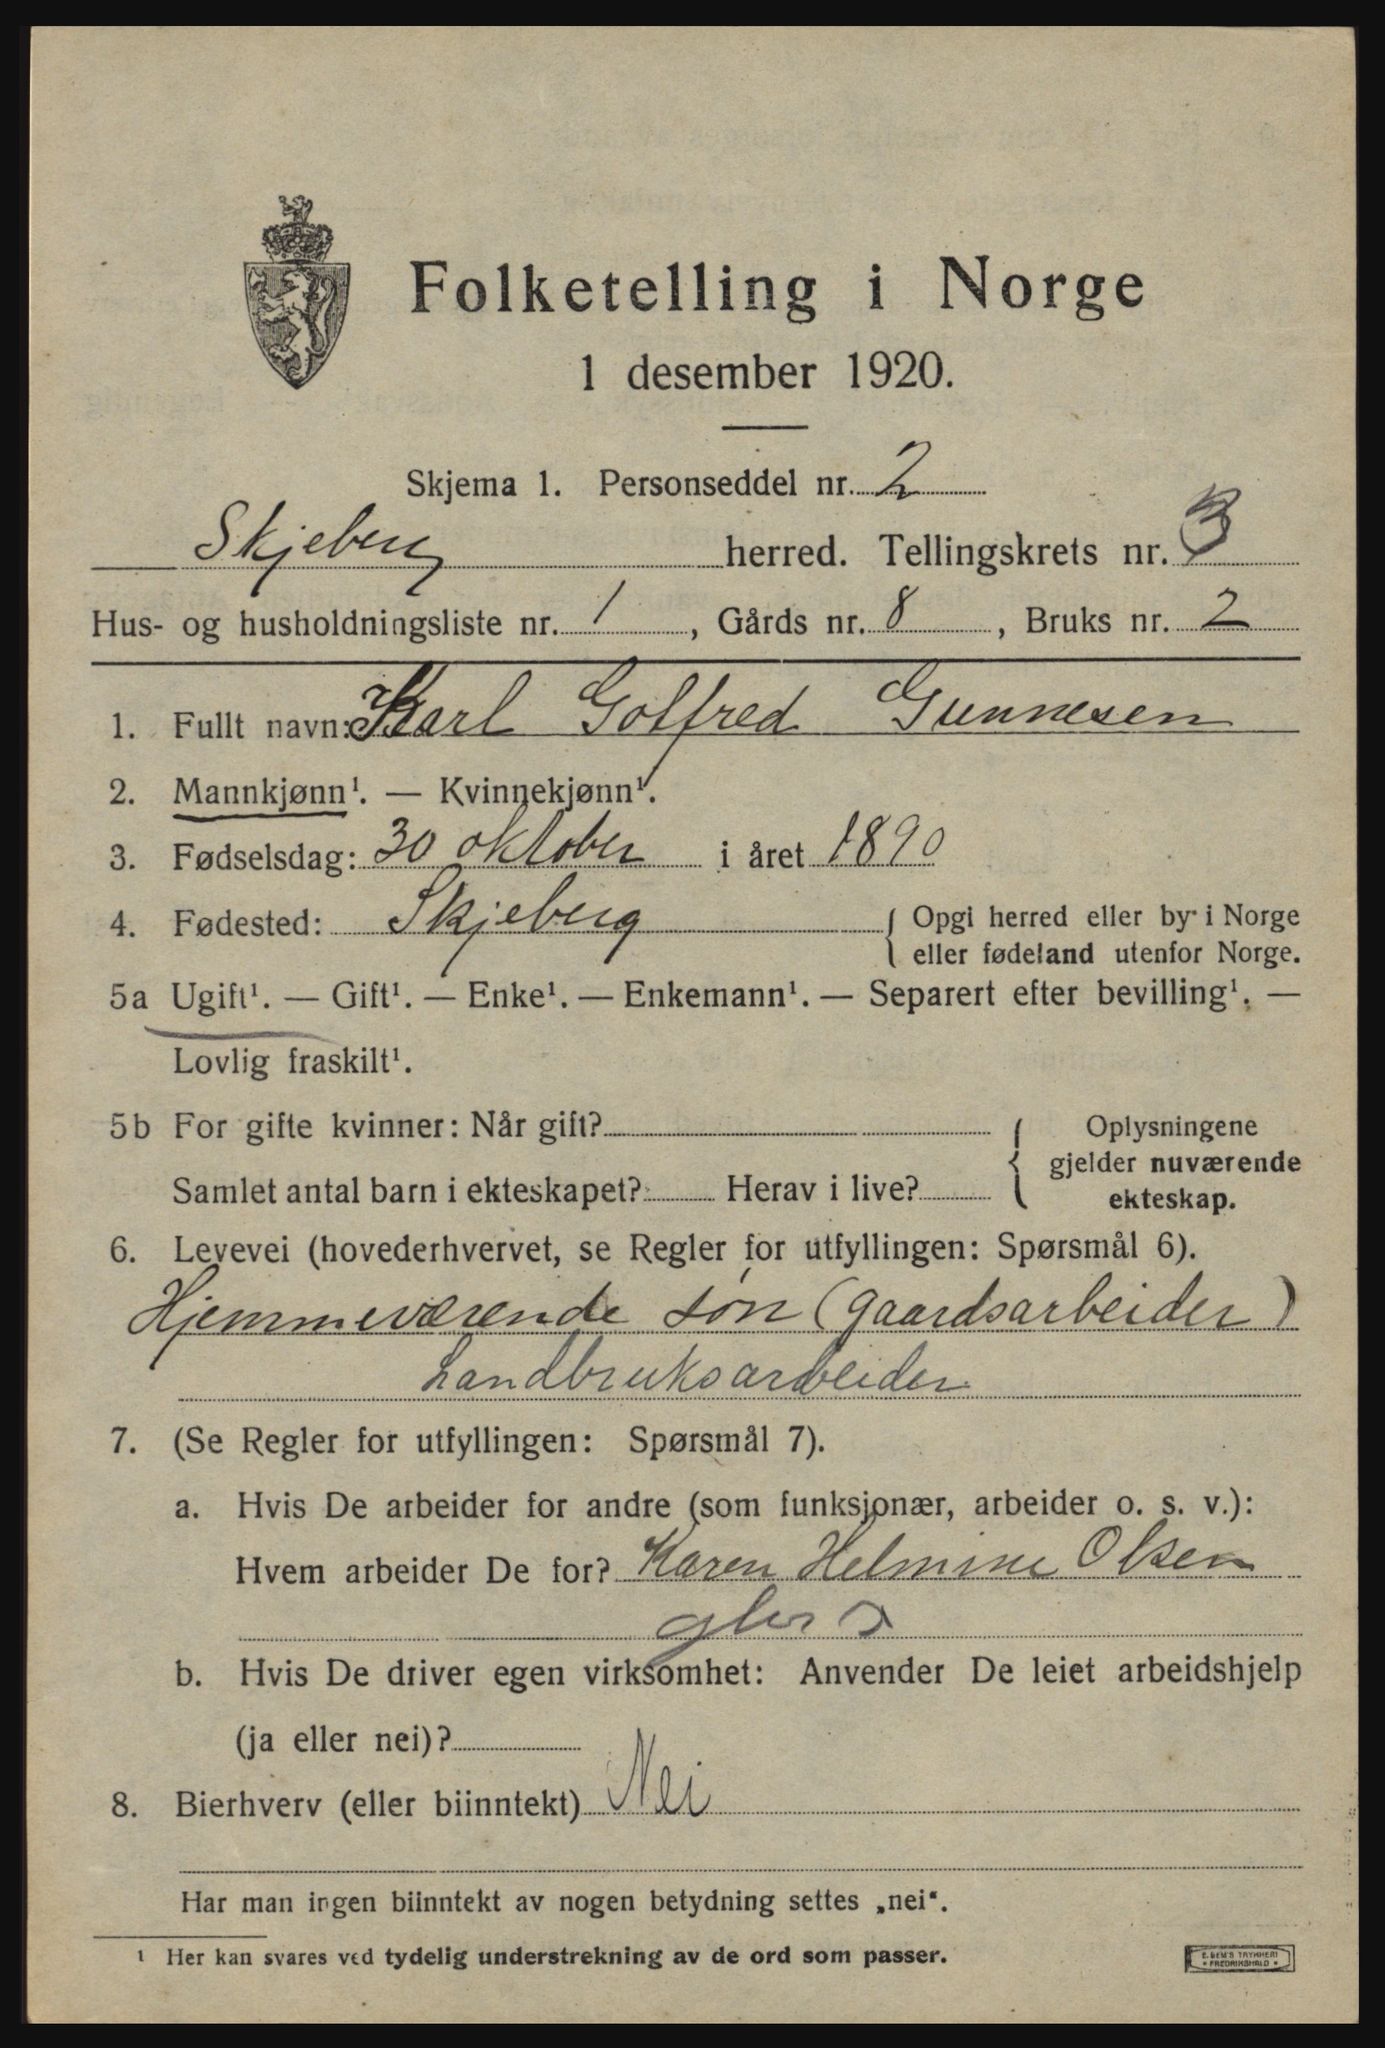 Folketelling i Norge
1 desember 1920.
Skjema 1. Personseddel nr. 2
Skjeberg herred. Tellingskrets nr. 3
Hus- og husholdningsliste nr. 1, Gårds nr. 8, Bruks nr. 2
1. Fullt navn: Karl Golfred Gunnesen
2. Mannkjønn¹. — Kvinnekjønn¹.
3. Fødselsdag: 30 oktober i året 1890
4. Fødested: Skjeberg { Opgi herred eller by i Norge
eller fødeland utenfor Norge.
5a Ugift¹. — Gift¹. — Enke¹. — Enkemann¹. — Separert efter bevilling¹. —
Lovlig fraskilt¹.
5b For gifte kvinner: Når gift? { Oplysningene
gjelder nuværende
Samlet antal barn i ekteskapet? Herav i live? ekteskap.
6. Levevei (hovederhvervet, se Regler for utfyllingen: Spørsmål 6).
Hjemmeværende søn (gaardsarbeider)
Landbruksarbeider
7. (Se Regler for utfyllingen: Spørsmål 7).
a. Hvis De arbeider for andre (som funksjonær, arbeider o. s. v.):
Hvem arbeider De for? Karen Helmine Olsen
b. Hvis De driver egen virksomhet: Anvender De leiet arbeidshjelp
(ja eller nei)?
8. Bierhverv (eller biinntekt) Nei
Har man ingen biinntekt av nogen betydning settes „nei“.
¹ Her kan svares ved tydelig understrekning av de ord som passer.
E. SEM'S TRYKKERI
• FREDRIKSHALD •